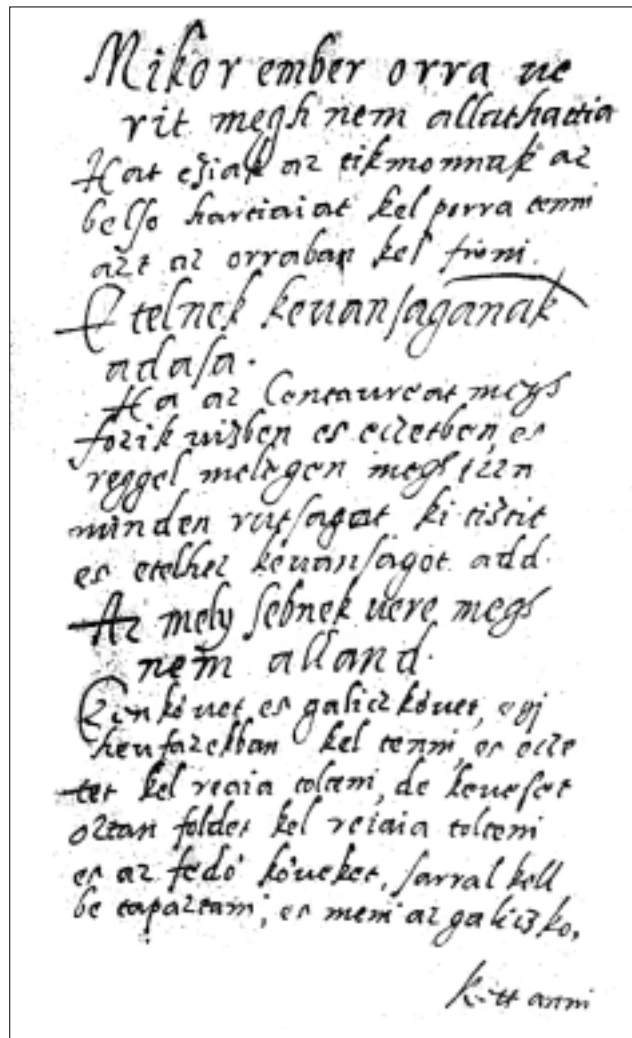 Mikor ember orra ve
rit megh nem allathattia
Hat esiak az tikmonnak az
belso hartiaiat kel porra tenni
azt az orraban kel fuuni.
Etelnek keuansaganak
adasa.
Ha az Centaureat megh
fozik uizben es eczetben, es
reggel melegen megh iszsza
minden rutsagot ki tisztit
es etelhez keuansagot add.
Az mely sebnek uere megh
nem alland.
kóuet es galicz kóuet, egj
heu fazekban kel tenni, es ecze
tet kel reaia tolteni, de keueset
oztan foldet kel reiaia tolteni
es az fedó kóueket, sarral kell
be tapaztani, es mem az galiczko,